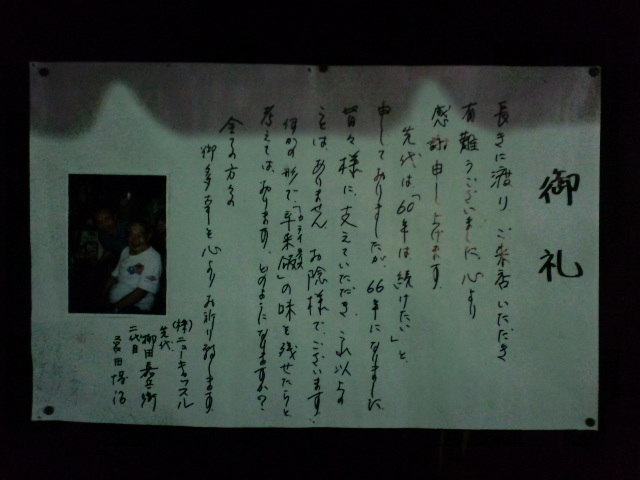 御礼
長きに渡り、ご来店いただき
有難うございました。心より
感謝申し上げます。
先代は「60年は続けたい」と
申しておりましたが、66年になりました。
皆々様に、支えていただき、これ以上の
ことは、ありません。お陰様でございます。
何かの形で、「辛来飯」の味を残せたらと
カライ
考えては、おります。どのようになりますか?
全ての方々の
御多幸を心よりお祈り致します。
(株)ニューキャッスル
先代
柳田嘉兵衛
二代目